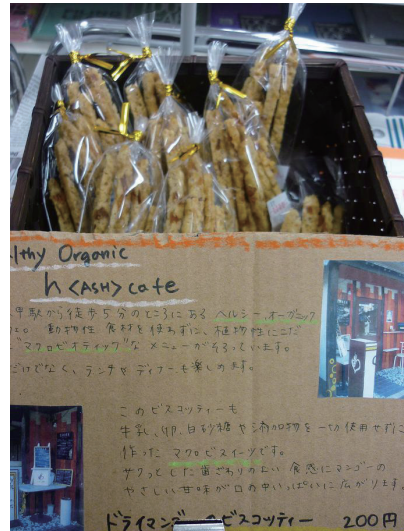 lthy Organic
h <ASH> cafe
駅から徒歩5分のところにある ヘルシー、オーガニック
動物性 食材を使わずに、植物性にこだ
"マクロビオティック"な メニューがそろっています。
だけでなく、ランチや ディナーも楽しめます。
このビスコッティーも
牛乳、卵、白砂糖 や 添加物を 一切 使用せずに
作った マクロビスイーツです。
サクッと した歯ざわりの 食感にマンゴーの
やさしい 甘味が口の中いっぱいに広がります。
ドライマンゴーのビスコッティー 200円